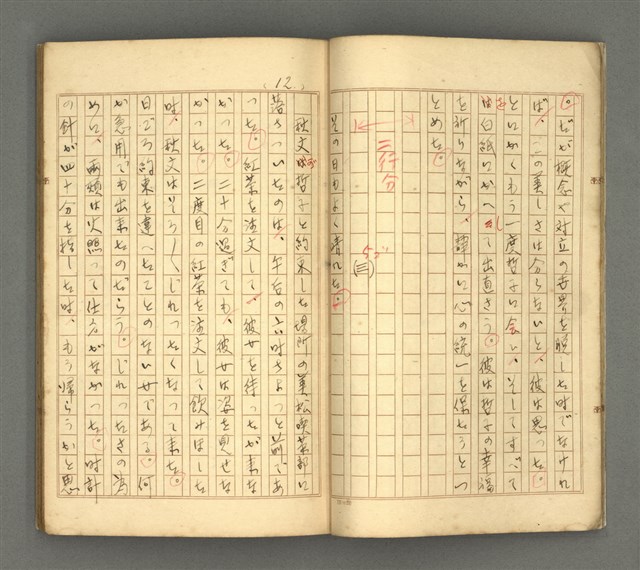 。だが概念や対立の世界を脱した時でなけれ
ば、この美しさは分らないと、彼は思った。
とにかくもう一度哲子に会い、そしてすべて
を白紙にかへして出直さう。彼は哲子の幸福
を祈りながら、静かに心の統一を保たうとつ
とめた。
二行分
(三) 5ゴ
その日もよく晴れた。
(12)
秋文が哲子と約束した場所の美松喫茶部に
落ちついたのは、午后の六時ちょっと前であ
った。紅茶を注文して、彼女を待ったが来な
かった。二十分過ぎても、彼女は姿を見せな
かった。二度目の紅茶を注文して飲みほした
時、秋文はそろ〳〵じれったくなって来た。
日ごろ約束を違へたことのない女である。何
か急用でも出来たのだらう。じれったさの為
めに、両頬は火照って仕方がなかった。時計
の針が四十分を指した時、もう帰らうかと思